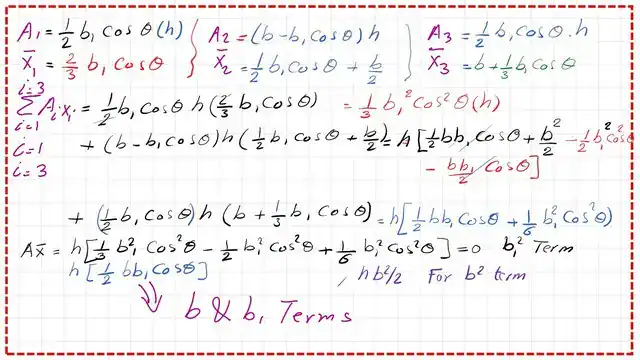 A₁ = 1/2 b₁ Cos θ (h) A₂ = (b - b₁ Cos θ) h A₃ = 1/2 b₁ Cos θ · h
X̄₁ = 2/3 b₁ Cos θ X̄₂ = 1/2 b₁ Cos θ + b/2 X̄₃ = b + 1/3 b₁ Cos θ
i=3
∑ Aᵢ xᵢ = 1/2 b₁ Cos θ h (2/3 b₁ Cos θ) = 1/3 b₁² Cos² θ (h)
i=1
i=1 + (b - b₁ Cos θ) h (1/2 b₁ Cos θ + b/2) = h [1/2 b b₁ Cos θ + b²/2 - 1/2 b₁² Cos² θ
i=3 - b b₁/2 Cos θ]
+ (1/2 b₁ Cos θ) h (b + 1/3 b₁ Cos θ) = h [1/2 b b₁ Cos θ + 1/6 b₁² Cos² θ)
A X̄ = h [1/3 b₁² Cos² θ - 1/2 b₁² Cos² θ + 1/6 b₁² Cos² θ] = 0 b₁² Term
h [1/2 b b₁ Cos θ] , h b²/2 For b² term
b & b₁ Terms